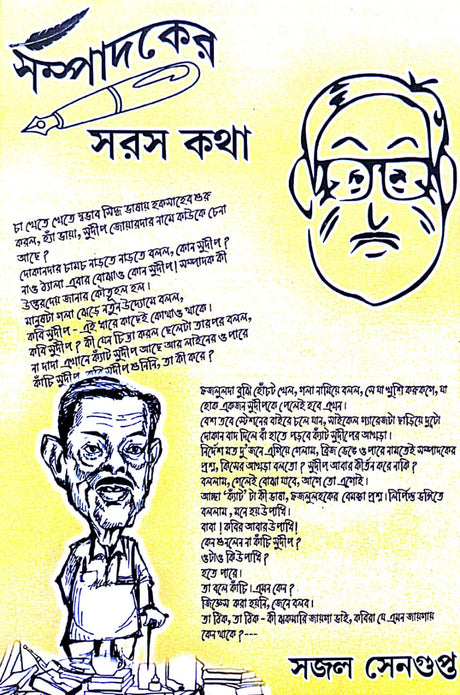 সম্পাদকের
সরস কথা
চা খেতে খেতে স্বভাব সিদ্ধ ভাষায় হকসাহেব শুরু
করল, হ্যাঁ ভায়া, সুদীপ জোয়ারদার নামে কাউকে চেনা
আছে ?
দোকানদার চামচ নাড়তে নাড়তে বলল, কোন সুদীপ ?
নাও ঠ্যালা এবার বোঝাও কোন সুদীপ ! সম্পাদক কী
উত্তর দেয় জানার কৌতূহল হল।
মানুষটা গলা ঝেড়ে নতুন উদ্যোমে বলল,
কবি সুদীপ - এই ধারে কাছেই কোথাও থাকে।
কবি সুদীপ ? কী যেন চিন্তা করল ছেলেটা তারপর বলল,
না দাদা এখানে ক্যাঁট সুদীপ আছে আর লাইনের ও পারে
কাঁচি সুদীপ, কবি সুদীপ শুনিনি, তা কী করে ?
ফজলুলদা বুঝি হোঁচট খেল, গলা নামিয়ে বলল, সে যা খুশি করুকগে, যা
হোক একজন সুদীপকে পেলেই হবে এখন।
বেশ তবে স্টেশনের বাইরে চলে যান, সাইকেল গ্যারেজটা ছাড়িয়ে দুটো
দোকান বাদ দিলে বাঁ হাতে পড়বে ক্যাঁট সুদীপের আখড়া।
নির্দেশ মত দু'জনে এগিয়ে গেলাম, ব্রিজ ভেঙে ও পারে নামতেই সম্পাদকের
প্রশ্ন, কিসের আখড়া বলতো ? সুদীপ আবার কীর্তন করে নাকি ?
বললাম, গেলেই বোঝা যাবে, আগে তো এগোই।
আচ্ছা 'ক্যাঁট' টা কী ভায়া, ফজলুলহকের বেমক্কা প্রশ্ন। নির্লিপ্ত ভঙ্গিতে
বললাম, মনে হয় উপাধি।
বাবা ! কবির আবার উপাধি !
কেন শুনলেন না কাঁচি সুদীপ ?
ওটাও কি উপাধি ?
হতে পারে।
তা বলে কাঁচি ! এমন কেন ?
জিজ্ঞেস করা হয়নি, জেনে বলব।
তা ঠিক, তা ঠিক - কী ঝকমারি জায়গা ভাই, কবিরা যে এমন জায়গায়
কেন থাকে ?---
সজল সেনগুপ্ত